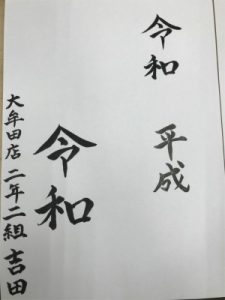 令和 平成
令和
大牟田店 二年二組 吉田